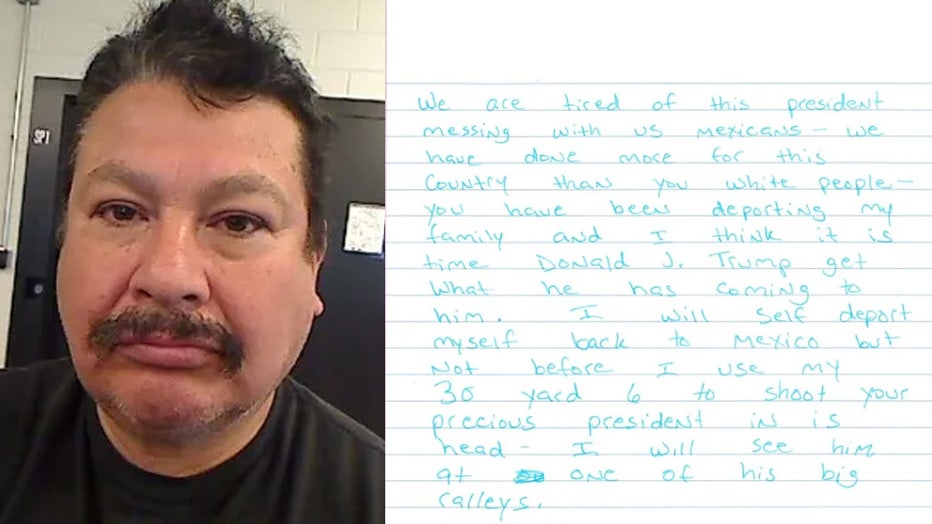 SP1
We are tired of this president
messing with us mexicans - we
have done more for this
Country than you white people -
you have been deporting my
family and I think it is
time Donald J. Trump get
what he has coming to
him. I will self deport
myself back to Mexico but
not before I use my
30 yard 6 to shoot your
precious president in is
head - I will see him
at one of his big
ralleys.